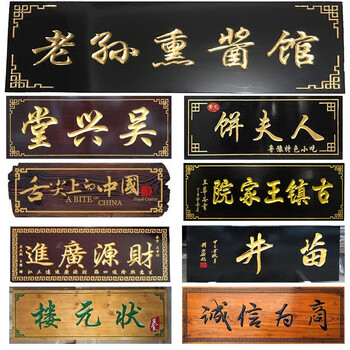 老孙熏酱馆
吴兴堂
饼夫人
特色小吃
舌尖上的中國
A BITE OF
CHINA
古镇王家院
財源廣進
苗井
状元楼
诚信为商